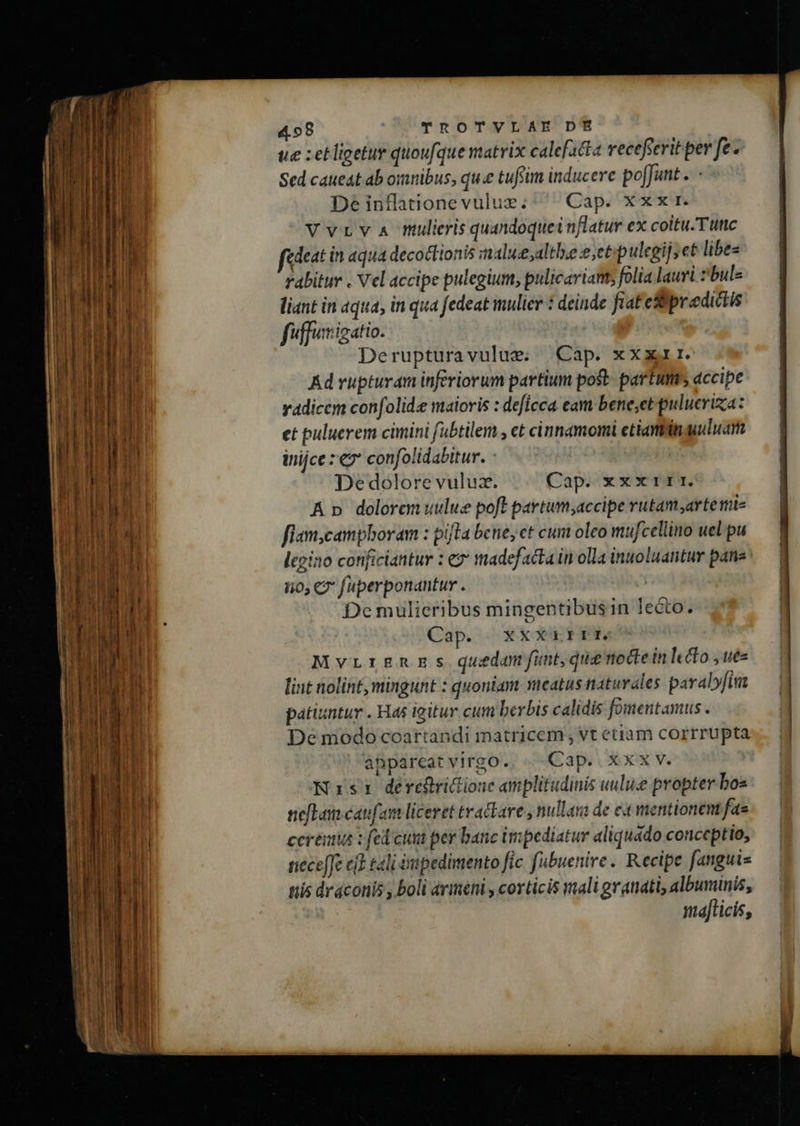 498 TROTVLAE DE
ue : et ligetur quousque matrix calefacta recesserit per se.
Sed caueat ab omnibus, quæ tussim inducere possunt.
De inflatione vuluæ. Cap. XXXI.
VVLVA mulieris quandoque inflatur ex coitu. Tunc
sedeat in aqua decoctionis maluæ, altheæ, et pulegij, et libe=
rabitur. Vel accipe pulegium, pulicariam, folia lauri : bul=
liant in aqua, in qua sedeat mulier : deinde fiat ex prædictis
suffumigatio.
De ruptura vuluæ. Cap. XXXII.
Ad rupturam inferiorum partium post partum, accipe
radicem consolidæ maioris : desicca eam bene, et pulueriza:
et puluerem cimini subtilem, et cinnamomi etiam in uuluam
inijce : & consolidabitur.
De dolore vuluæ. Cap. XXXIII.
AD dolorem uuluæ post partum, accipe rutam, artemi=
siam, camphoram : pista bene, et cum oleo muscellino uel pu
legino conficiantur : & madefacta in olla inuoluantur pan=
no, & superponantur.
De mulieribus mingentibus in lecto.
Cap. XXXIIII.
MVLIERES quædam sunt, quæ nocte in lecto, ue=
lint nolint, mingunt : quoniam meatus naturales paralysim
patiuntur. Has igitur cum herbis calidis fomentamus.
De modo coartandi matricem, vt etiam corrrupta
appareat virgo. Cap. XXXV.
NISI de restrictione amplitudinis uuluæ propter ho=
nestam causam liceret tractare, nullam de ea mentionem fa=
ceremus : sed cum per hanc impediatur aliquādo conceptio,
necesse est tali impedimento sic subuenire. Recipe sangui=
nis draconis, boli armeni, corticis mali granati, albuminis,
masticis,